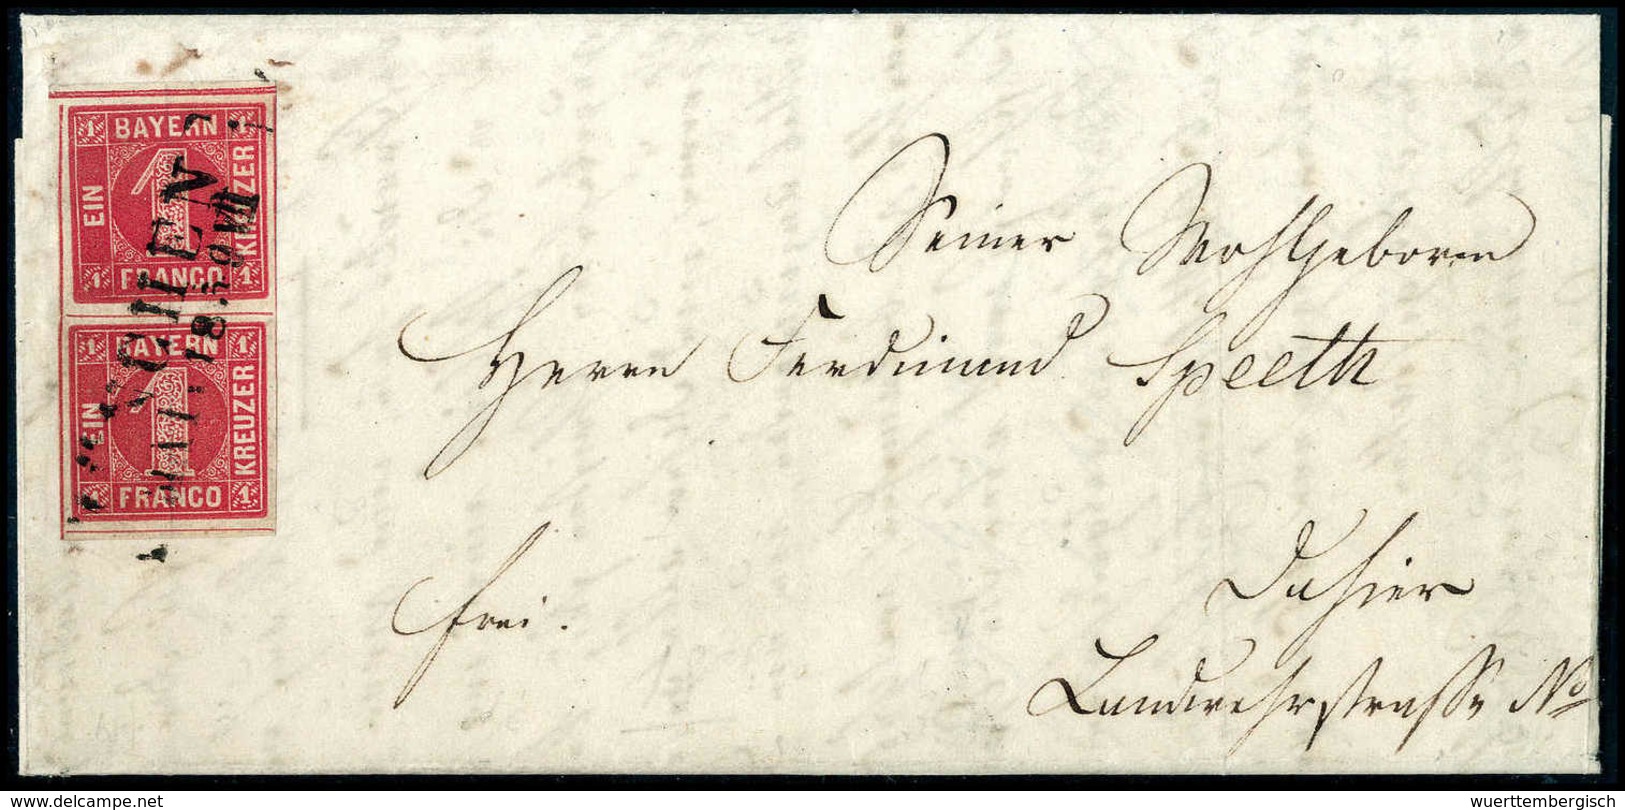 1 BAYERN 1
EIN 1 KREUZER
1 FRANCO 1
1 BAYERN 1
EIN 1 KREUZER
1 FRANCO 1
MÜNCHEN
18. VII
Seiner Wohlgeboren
Herrn Ferdinand Speeth
Dahier
frei.
Landwehrstrasse No
delcampe.net
wuerttembergisch